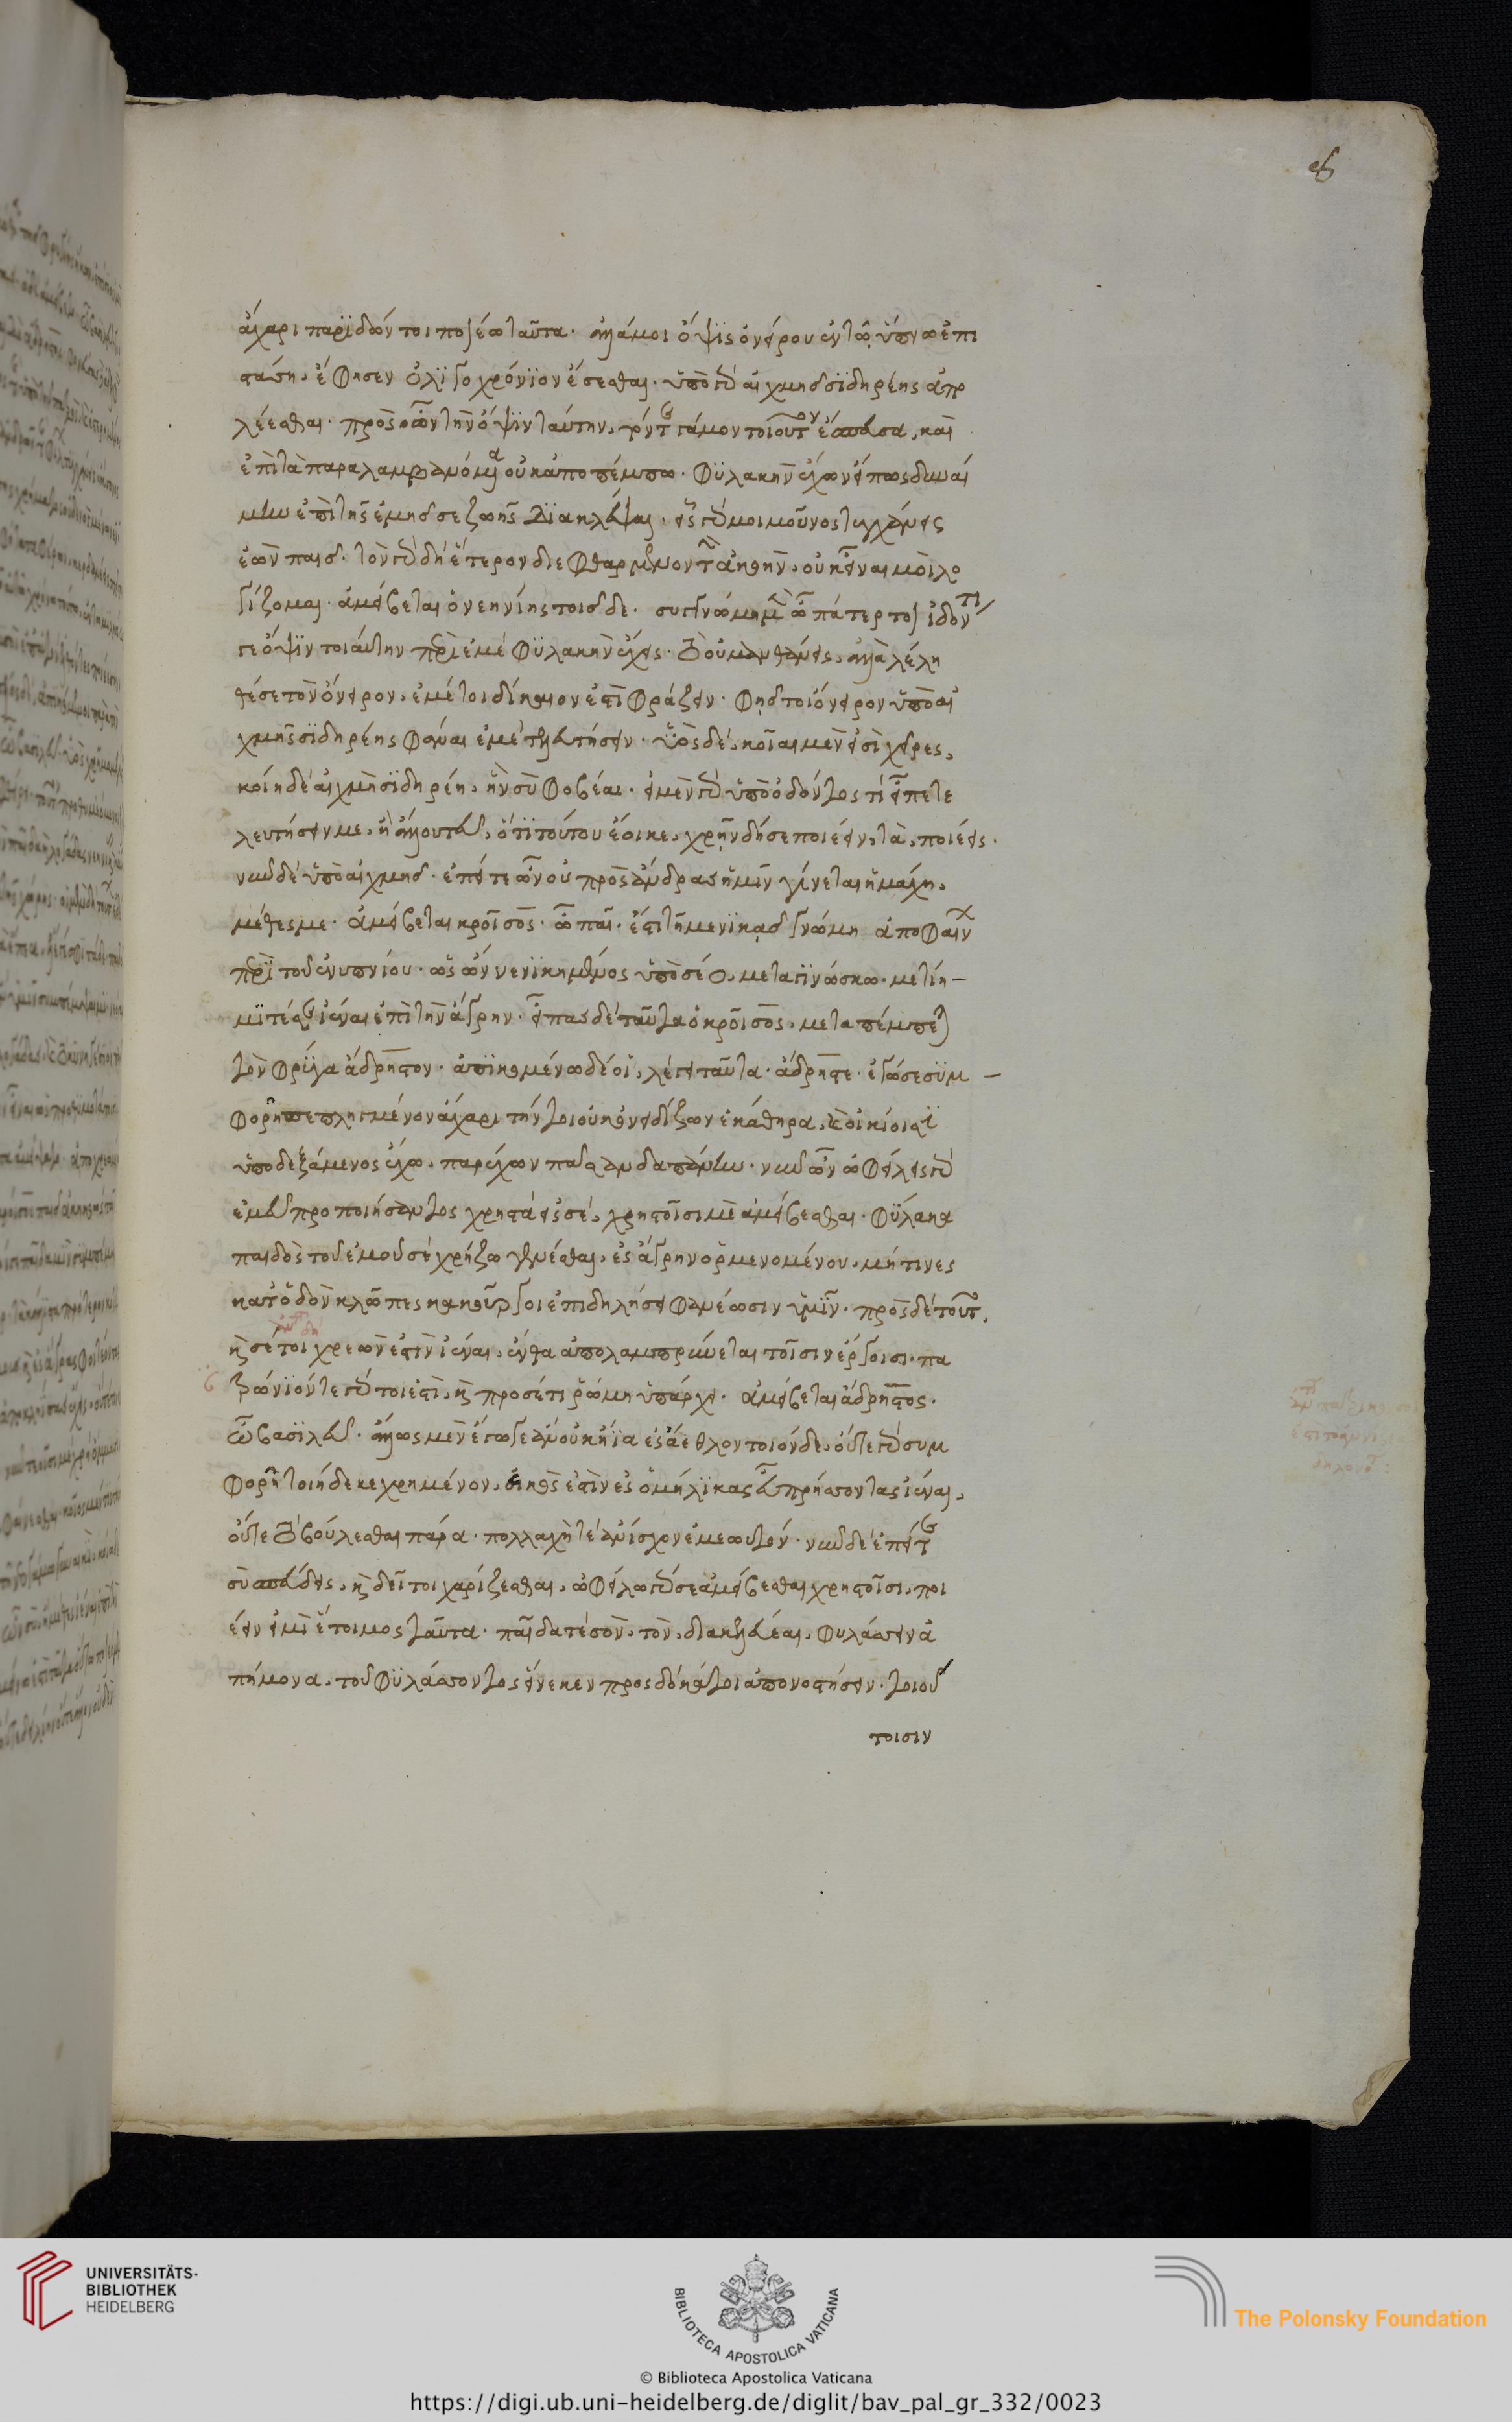 ἄχαρι παρϊδών τοι ποιέω ταῦτα· ἀλλά μοι ὄψις ὀνείρου ἐν τῷ ὕπνω ἐπι
στᾶσα, ἔφησεν ὀλϊγοχρόνϊον ἔσεσθαι· ὑπὸ γὰρ αἰχμῆς σϊδηρέης ἀπο
λέεσθαι· πρὸς ὦν τὴν ὄψϊν ταύτην, τόν τε γάμον τοι τοῦτον ἔσπευσα, καὶ
ἐπὶ τὰ παραλαμβανόμενα οὐκ ἀποπέμπω· φϋλακὴν ἔχων εἴ πως δυναί
μην ἐπὶ τῆς ἐμῆς σε ζωῆς δϊακλέψαι· εἷς γάρ μοι μοῦνος τυγχάνεις
ἐὼν παῖς· τὸν γὰρ δὴ ἕτερον διεφθαρμένον τὴν ἀκοὴν, οὐκ εἶναί μοι λο
γίζομαι· ἀμείβεται ὁ νεηνίης τοῖσδε· συγγνώμη μὲν ὦ πάτερ τοι ἰδόντι
γε ὄψϊν τοιαύτην περὶ ἐμὲ φϋλακὴν ἔχεις· τὸ δὲ οὐ μανθάνεις, ἀλλὰ λέλη
θέ σε τὸ ὄνειρον, ἐμέ τοι δίκαιον ἐστὶ φράζειν· φῄς τοι ὄνειρον ὑπὸ αἰ
χμῆς σϊδηρέης φάναι ἐμὲ τελευτήσειν· ὑὸς δὲ, κοῖαι μὲν εἰσὶ χεῖρες,
κοίη δὲ αἰχμὴ σϊδηρέη, ἣν σὺ φοβέαι· εἰ μὲν γὰρ ὑπὸ ὀδόντος τί εἶπε τε
λευτήσειν με, ἢ ἄλλου τευ, ὅ τϊ τούτου ἔοικε, χρῆν δή σε ποιέειν, τὰ, ποιέεις·
νῦν δὲ ὑπὸ αἰχμῆς· ἐπεί τε ὦν οὐ πρὸς ἄνδρας ἡμῖν γίνεται ἡ μάχη,
μέθες με· ἀμείβεται κροῖσος· ὦ παῖ· ἔστι τῆ με νϊκᾷς γνώμη ἀποφαίν
περὶ τοῦ ἐνυπνίου· ὡς ὦν νενϊκημένος ὑπὸ σέο, μεταγϊνώσκω· μετίη-
μϊ τέ σε ἰέναι ἐπὶ τὴν ἄγρην· εἶπας δὲ ταῦτα ὁ κροῖσος, μεταπέμπεται
τὸν φρύγα ἄδρηστον· ἀπϊκομένω δέ οἱ, λέγει ταῦτα· ἄδρηστε· ἐγώ σε συμ-
φορῆ πεπληγμένον ἀχάρι τήν τοι οὐκ ὀνειδίζων ἐκάθηρα, καὶ οἰκίοισϊ
ὑποδεξάμενος ἔχω, παρέχων πᾶσαν δαπάνην· νῦν ὦν ὀφείλεις γὰρ
ἐμεῦ προποιήσαντος χρηστὰ εἰς σὲ, χρηστοῖσί με ἀμείβεσθαι· φύλακα
παιδὸς τοῦ ἐμοῦ σὲ χρήζω γενέσθαι, ἐς ἄγρην ὁρμενομένου, μή τινες
κατ' ὁδὸν κλῶπες κακοῦργοι ἐπὶ δηλήσει φανέωσιν ὑμῖν· πρὸς δὲ τούτω,
καὶ σέ τοι χρεών ἐστιν ἰέναι, ἔνθα ἀπολαμπρύνεται τοῖσιν ἔργοισι· πα
τρώϊόν τε γάρ τοι ἐστὶ, καὶ προσέτι ῥώμη ὑπάρχει· ἀμείβεται ἄδρηστος·
ὦ βασϊλεῦ· ἄλλως μὲν ἔγωγε ἂν οὐκ ἤϊα ἐς ἄεθλον τοιόνδε, οὔτε γὰρ συμ
φορῆ τοιῆδε κεχρημένον, οἰκός ἐστιν ἐς ὁμήλϊκας εὖ πρήσσοντας ἰέναι,
οὔτε τὸ βούλεσθαι πάρα· πολλαχῆ τε ἂν ἴσχον ἐμεωυτόν· νῦν δὲ ἐπεί τε
σὺ σπεύδεις, καὶ δεῖ τοι χαρίζεσθαι, ὀφείλω γάρ σε ἀμείβεσθαι χρηστοῖσι, ποι
έειν εἰμὶ ἕτοιμος ταῦτα· παῖδα τὲ σὸν, τὸν, διακελεύεαι, φυλάσσειν ἀ
πήμονα, τοῦ φϋλάσσοντος εἵνεκεν προσδόκα τοι ἀπονοστήσειν· τοιού
τοισιν
UNIVERSITÄTS-
BIBLIOTHEK
HEIDELBERG
BIBLIOTECA APOSTOLICA VATICANA
The Polonsky Foundation
© Biblioteca Apostolica Vaticana
https://digi.ub.uni-heidelberg.de/diglit/bav_pal_gr_332/0023